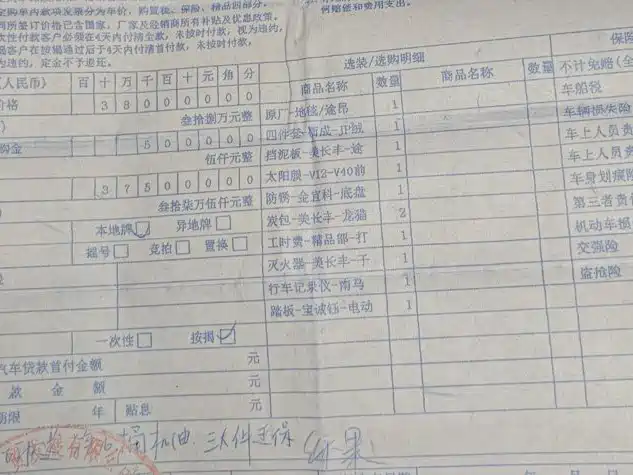 何赔偿和费用支出。
两所签订价格已含国家，厂家及经销商所有补贴及优惠政策。
次性付款客户必须在4天内付清全款，未按时付款，视为违约，
揭客户在按揭通过后于4天内付清首付款，未按时付款，
为违约，定金不予追还。
选装/选购明细
（人民币） 百 十 万 千 百 十 元 角 分
商品名称 数量 商品名称 数量 不计免赔(全
价格 3 8 0 0 0 0 0 0
叁拾捌万元整
原厂-地毯/途昂 1 车船税
购金 5 0 0 0 0 0
伍仟元整
1 车辆损失险
挡泥板-美长丰-途 1 车上人员责
3 7 5 0 0 0 0 0
叁拾柒万伍仟元整
太阳膜-V12-V40前 1 车上人员责
防锈-全宜科-底盘 1 车身划痕险
本地牌 异地牌
炭包-美长丰-龙猫 2 第三者责
摇号 竞拍 置换
工时费-精品部-打 1 机动车损
灭火器-美长丰-干 1 交强险
行车记录仪-南马 1 盗抢险
踏板-宝诚钰-电动 1
一次性 按揭
汽车贷款首付金额 元
款 金 额 元
期限 年 贴息 元
桶机油